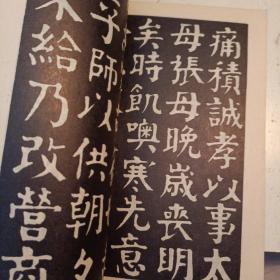 痛積誠孝以事太
母張母晚歲喪明
矣時飢噢寒先意
師以供朝夕
給乃改營商